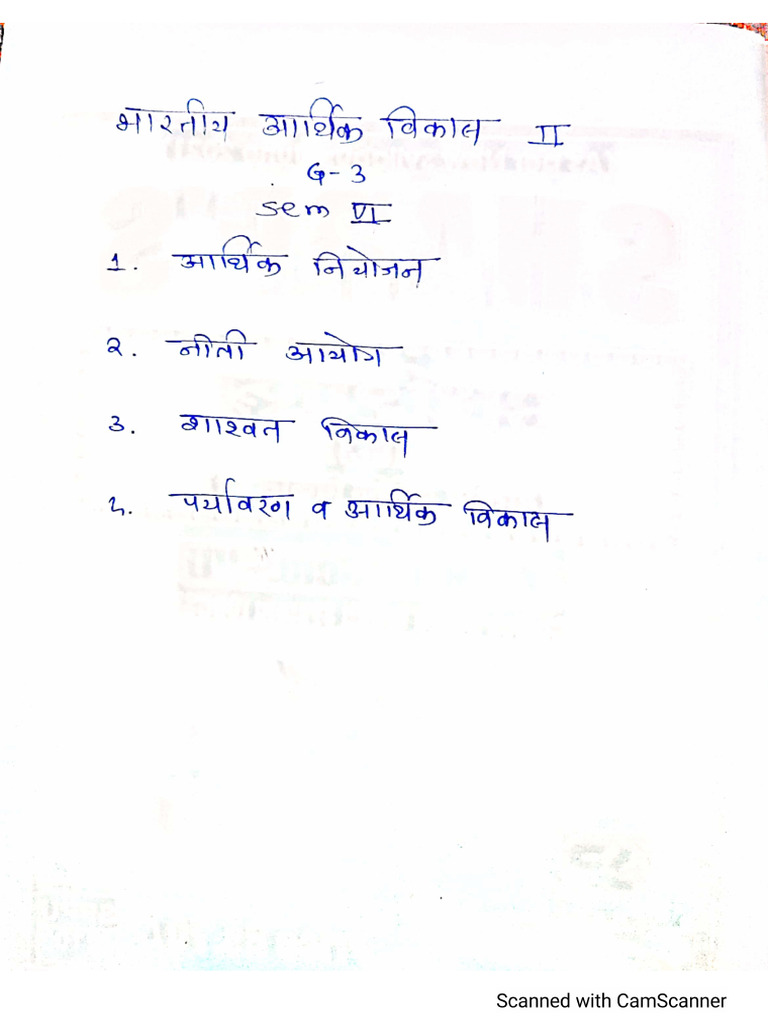 भारतीय आर्थिक विकास II
G-3
sem VI
1. आर्थिक नियोजन
२. नीती आयोग
3. शाश्वत विकास
४. पर्यावरण व आर्थिक विकास
Scanned with CamScanner